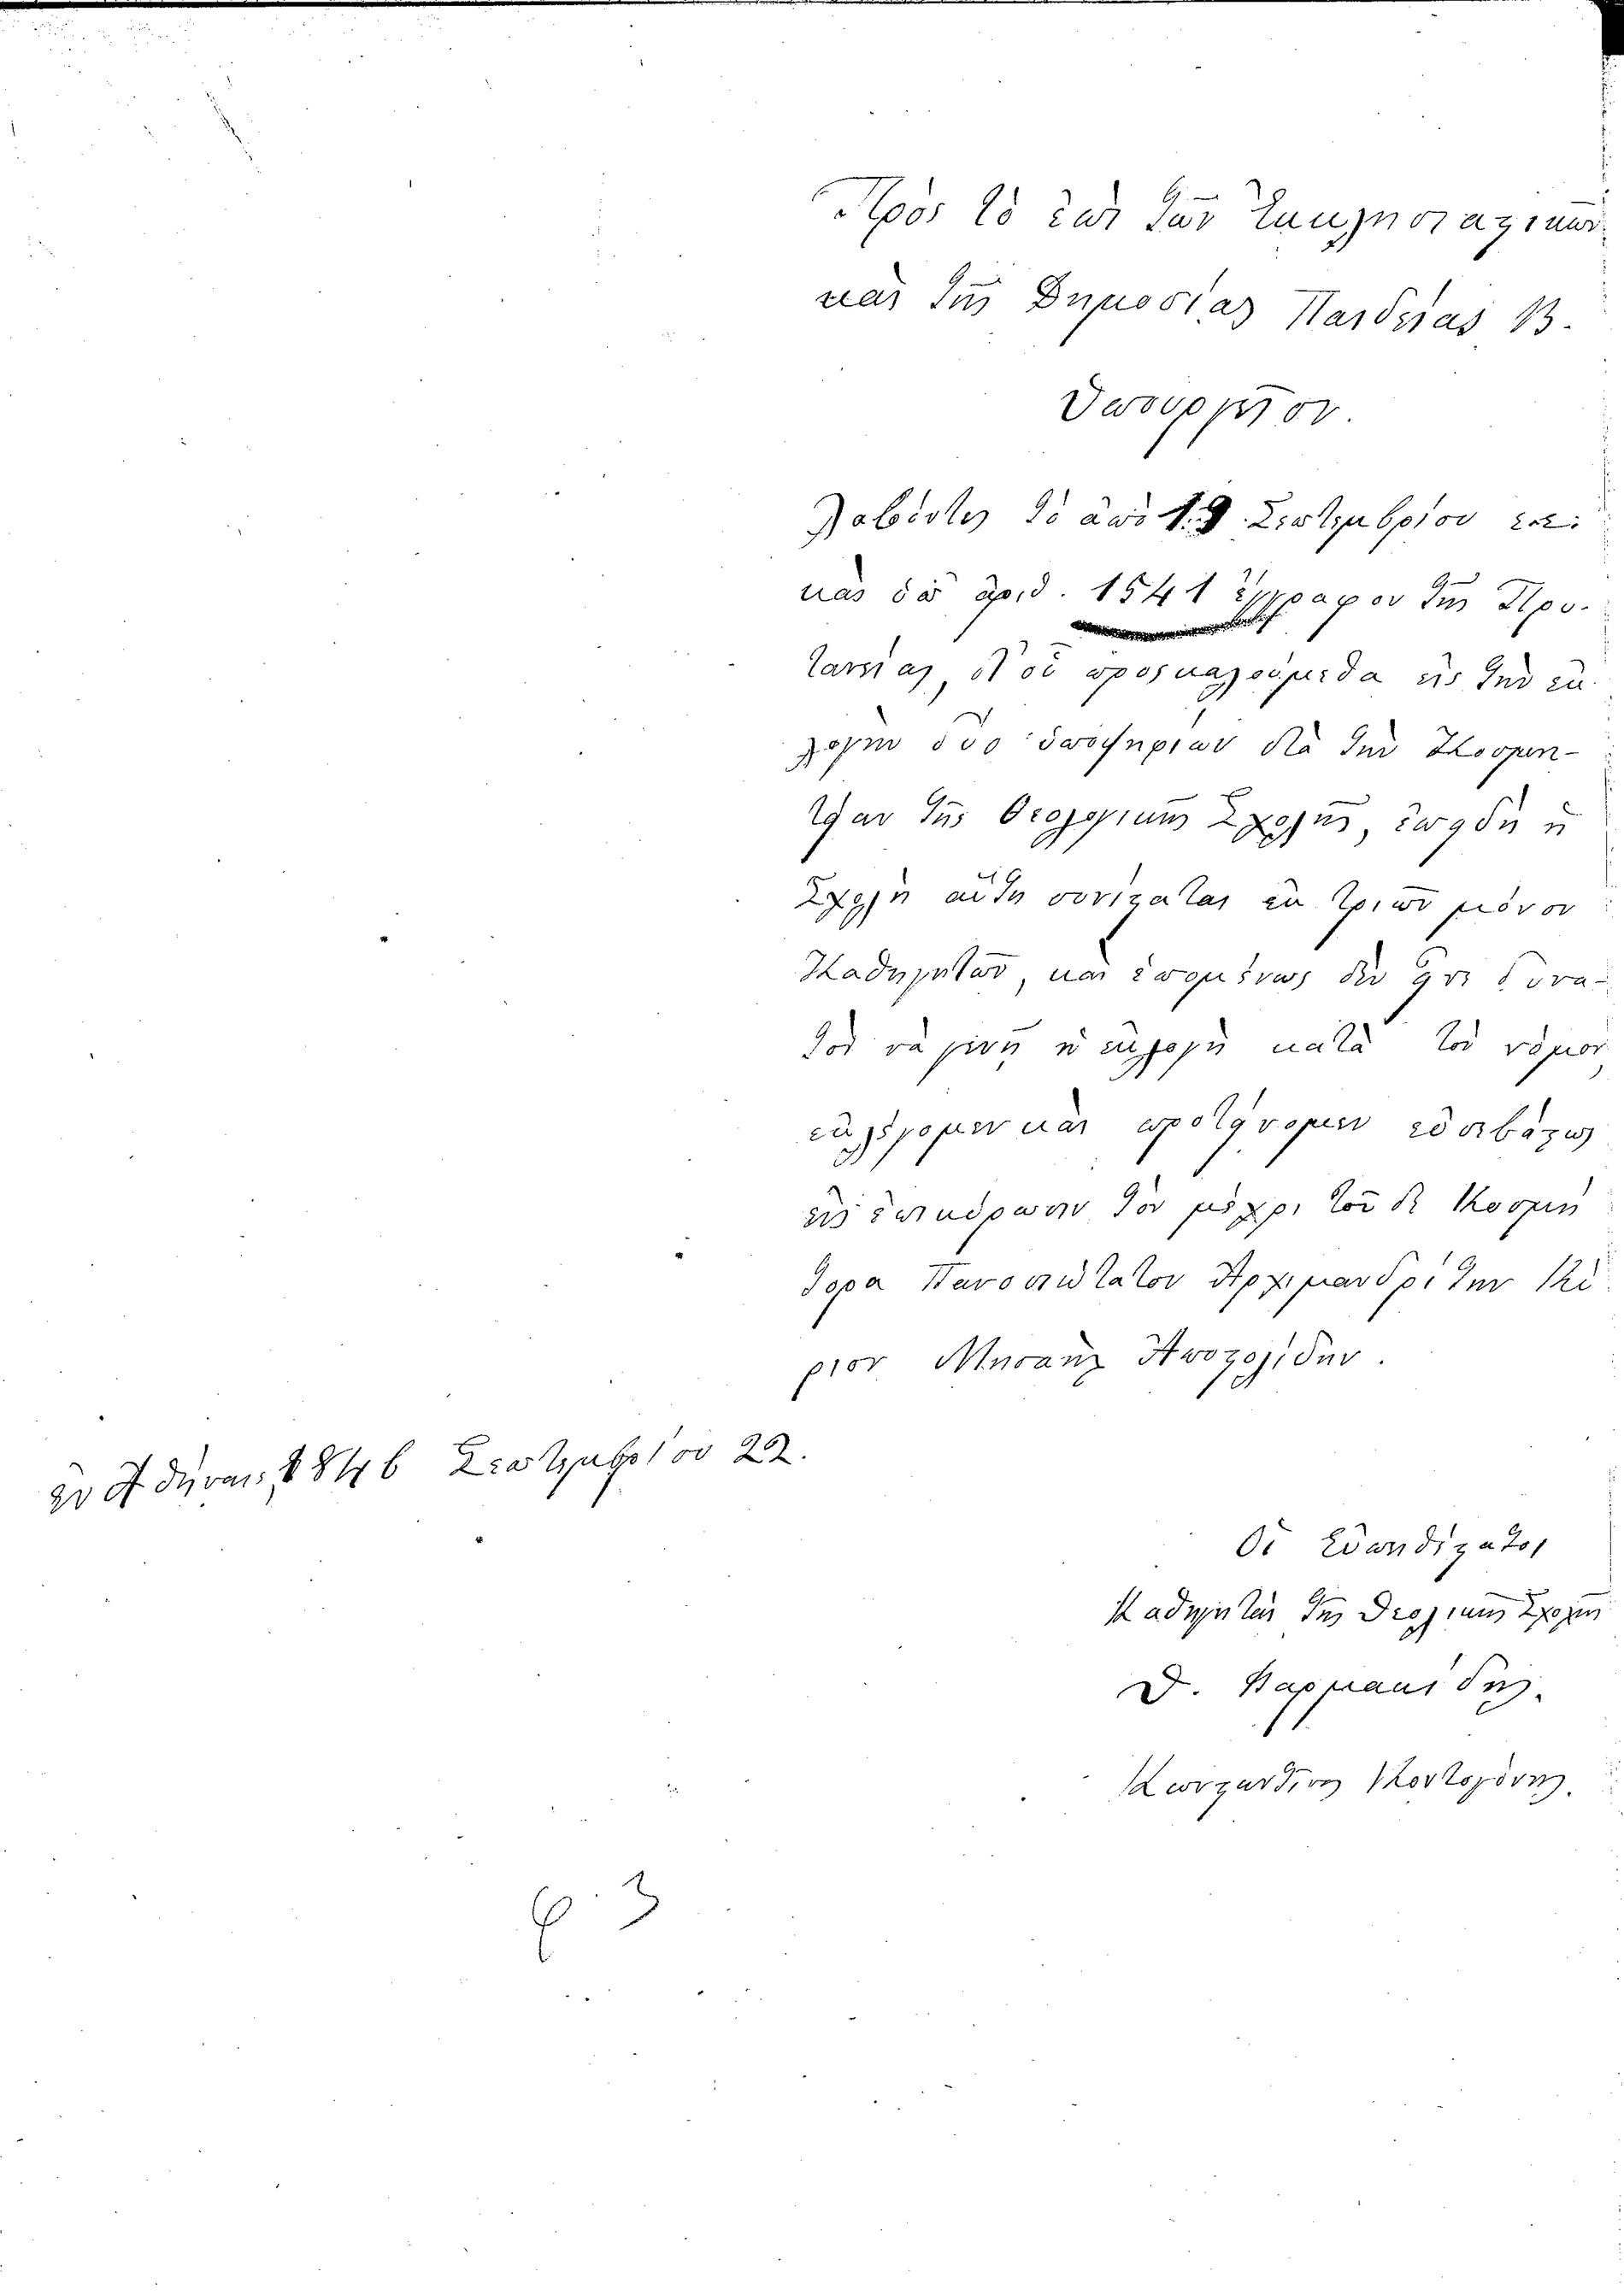 Πρὸς τὸ ἐπὶ τῶν Ἐκκλησιαστικῶν
καὶ τῆς Δημοσίας Παιδείας Β.
Ὑπουργεῖον.
Λαβόντες τὸ ἀπὸ 19 Σεπτεμβρίου καὶ
ὑπ' ἀριθ. 1541 ἔγγραφον τῆς Πρυ-
τανείας, δι' οὗ προσκαλούμεθα εἰς τὴν ἐκ-
λογὴν δύο ὑποψηφίων διὰ τὴν Κοσμη-
τείαν τῆς Θεολογικῆς Σχολῆς, ἐπειδὴ ἡ
Σχολὴ αὕτη σύγκειται ἐκ τριῶν μόνον
Καθηγητῶν, καὶ ἑπομένως δὲν εἶναι δυνα-
τὸν νὰ γίνῃ ἡ ἐκλογὴ κατὰ τὸν νόμον,
ἐκλέγομεν καὶ προτείνομεν εὐσεβάστως
εἰς ἐπικύρωσιν τὸν μέχρι τοῦδε Κοσμή
τορα Πανοσιώτατον Ἀρχιμανδρίτην Κύ
ριον Μισαὴλ Ἀποστολίδην.
ἐν Ἀθήναις 1846 Σεπτεμβρίου 22.
Οἱ Εὐπειθέστατοι
Καθηγηταὶ τῆς Θεολογικῆς Σχολῆς
Θ. Φαρμακίδης.
Κωνσταντῖνος Κοντογόνης.
φ 3